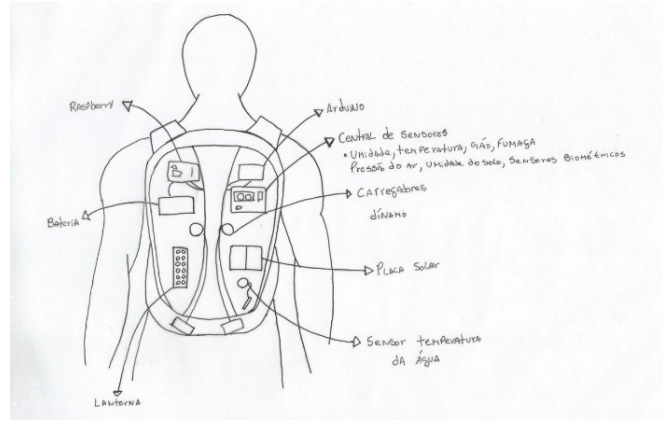 Raspberry
Arduino
Central de Sensores
• Umidade, temperatura, gás, fumaça
Pressão do Ar, Umidade do solo, Sensores Biométricos
Carregadores
dínamo
Bateria
Placa Solar
Sensor temperatura
da água
Lanterna